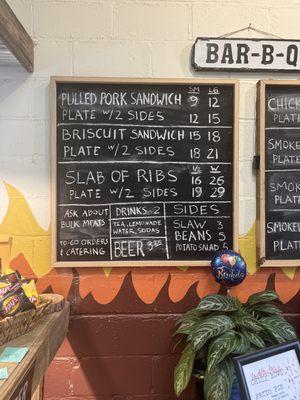 BAR-B-Q
SM LG
PULLED PORK SANDWICH 9 12
PLATE W/2 SIDES 12 15
BRISCUIT SANDWICH 15 18
PLATE W/2 SIDES 18 21
SLAB OF RIBS 16 26
PLATE W/2 SIDES 19 29
ASK ABOUT
BULK MEATS
TO-GO ORDERS
& CATERING
DRINKS 2
TEA, LEMONADE
WATER, SODAS
BEER 3.25
SIDES
SLAW 3
BEANS 5
POTATO SALAD 5
CHICK
PLATE
SMOKE
PLATE
SMOKE
PLATE
SMOKED
PLATE